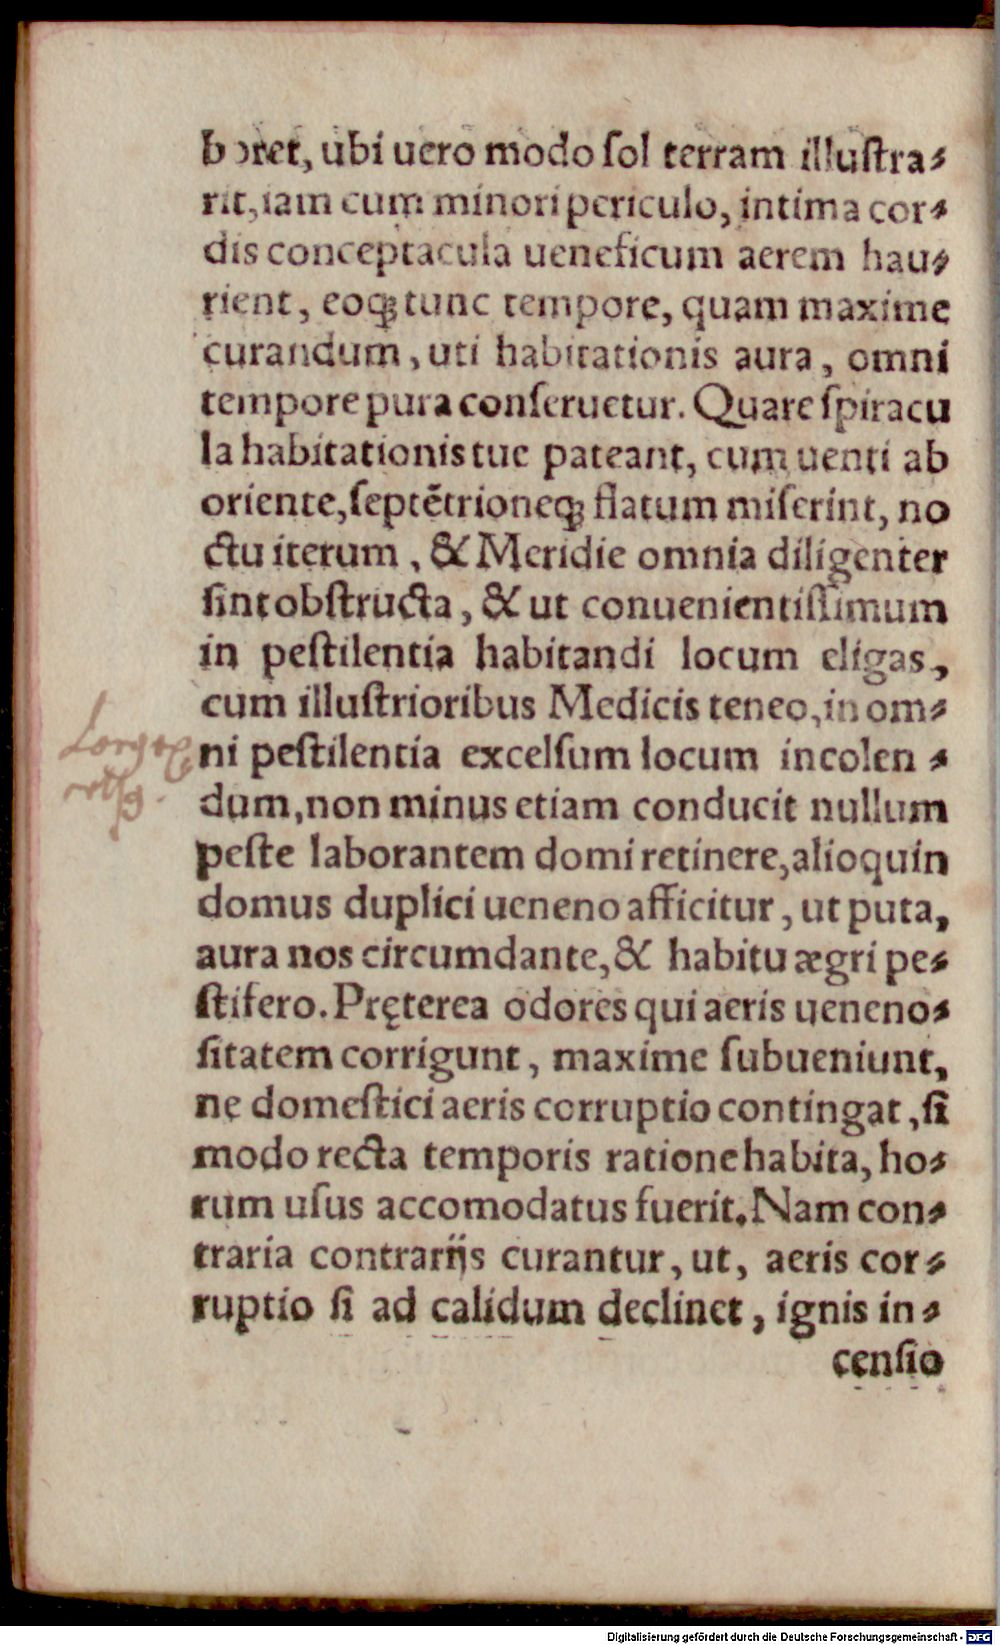 boret, ubi uero modo ſol terram illuſtra⸗
rit, iam cum minori periculo, intima cor⸗
dis conceptacula ueneficum aerem hau⸗
rient, eoq́ꝫ tunc tempore, quam maxime
curandum, uti habitationis aura, omni
tempore pura conſeruetur. Quare ſpiracu
la habitationis tue pateant, cum uenti ab
oriente, ſeptẽtrioneq́ꝫ flatum miſerint, no
ctu iterum, & Meridie omnia diligenter
ſint obſtructa, & ut conuenientiſſimum
in peſtilentia habitandi locum eligas,
cum illuſtrioribus Medicis teneo, in om⸗
ni peſtilentia excelſum locum incolen⸗
dum, non minus etiam conducit nullum
peſte laborantem domi retinere, alioquin
domus duplici ueneno afficitur, ut puta,
aura nos circumdante, & habitu ægri pe⸗
ſtifero. Pręterea odores qui aeris ueneno⸗
ſitatem corrigunt, maxime ſubueniunt,
ne domeſtici aeris corruptio contingat, ſi
modo recta temporis ratione habita, ho⸗
rum uſus accomodatus fuerit. Nam con⸗
traria contrarijs curantur, ut, aeris cor⸗
ruptio ſi ad calidum declinet, ignis in⸗
cenſio
Digitalisierung gefördert durch die Deutsche Forschungsgemeinschaft - DFG